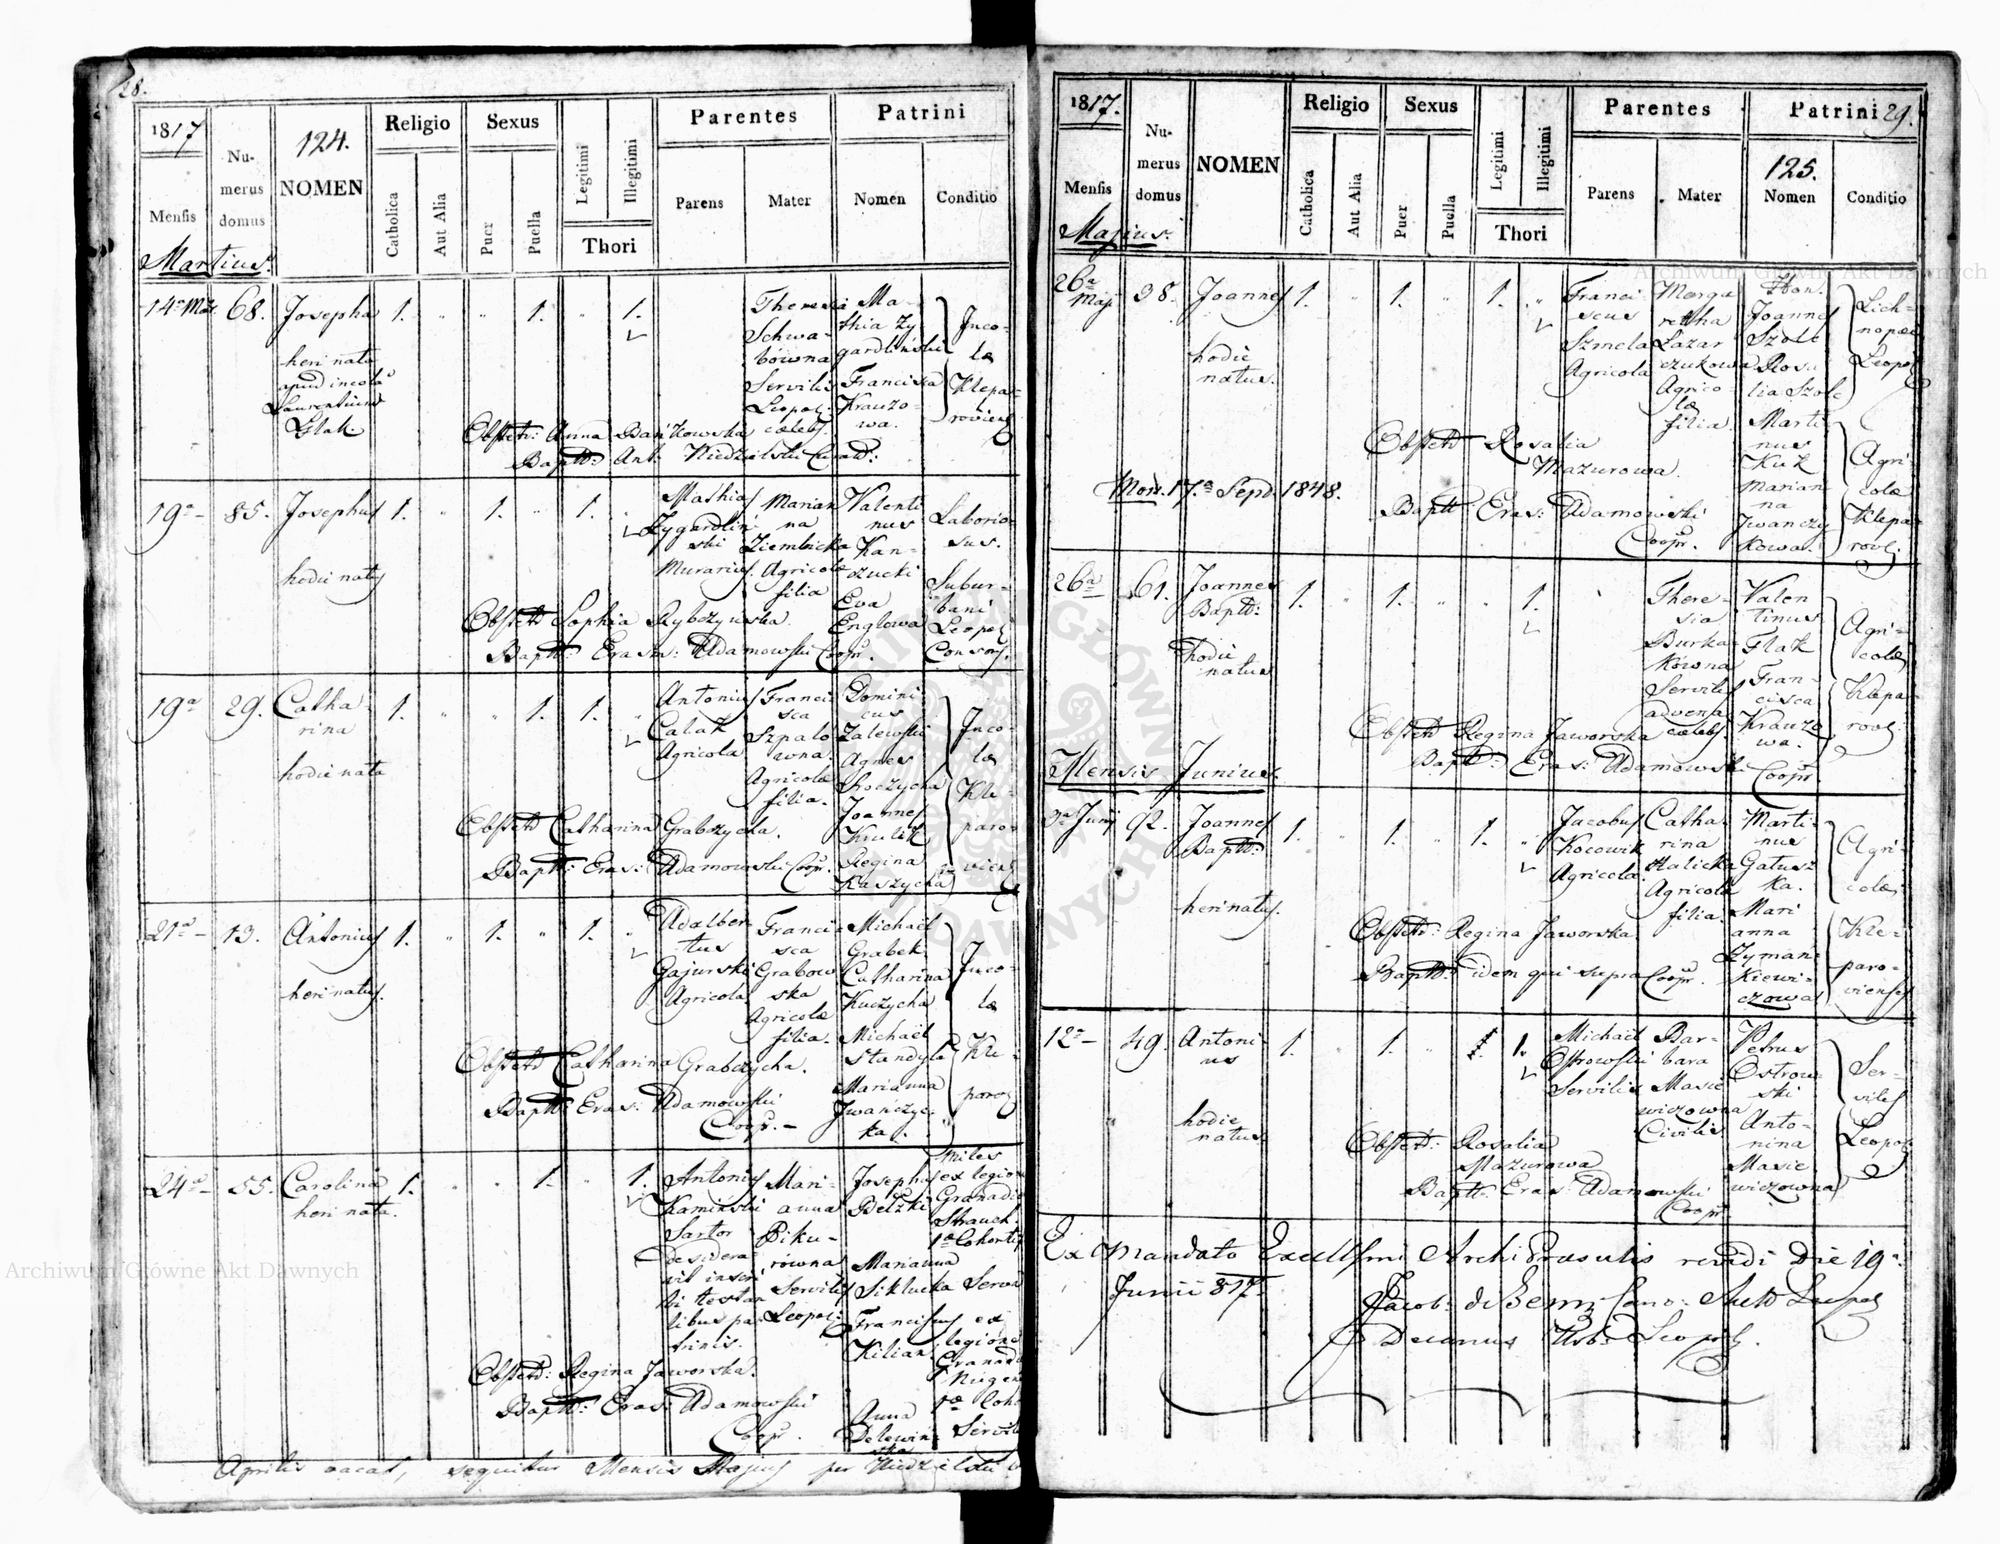 28.
1817
Mensis
Nu-
merus
domus
124.
NOMEN
Religio
Catholica
Aut Alia
Sexus
Puer
Puella
Legitimi
Illegitimi
Thori
Parentes
Parens
Mater
Patrini
Nomen
Conditio
Martius.
14a Mar.
68.
Josepha
heri nata
apud incolam
Laurentium
1.
1.
1.
Theresia
Schwa-
bówna
Servilis
Leopol:
caelebs.
Ma-
thia Zy
gardliński
Francisca
Krauzo-
wa.
Inco-
lae
Klepa-
roviens
Obstetr: Anna Bańkowska
Baptt: Ant. Niedzielski Curat:
19a
85.
Josephus
hodie natus
1.
1.
1.
Mathias
Zygardlin
ski
Murarius.
Marian
na
Ziembicka
Agricolae
filia
Valenti
nus
Kan-
czucki
Eva
Englowa
Laborio-
sus.
Subur-
bani
Leopol
Consors.
Obstetr Sophia Rybczyńska.
Baptt: Erasm: Adamowski Coopr.
19a
29.
Catha-
rina
hodie nata
1.
1.
1.
Antonius
Calak
Agricola
Franci
sca
Szpalo
wna.
Agricolae
filia.
Domini
cus
Zalewski
Agnes
Joannes
Kulik
Regina
Kaszycha
Inco-
lae
Kle-
paro-
viens
Obstetr Catharina Grabczycha.
Baptt: Eras: Adamowski Coopr.
21a
13.
Antonius
heri natus.
1.
1.
1.
Adalber-
tus
Gajurski
Agricola
Franci-
sca
Grabow
ska
Agricolae
filia.
Michael
Grabek
Catharina
Kuczycha
Michael
Standyla
Marianna
Iwańczyc-
ka.
Inco-
lae
Kle-
parov
Obstetr Catharina Grabczycha.
Baptt: Eras: Adamowski
Coopr.
24a
55.
Carolina
heri nata.
1.
1.
1.
Antonius
Kaminski
Sartor
desidera
vit inscri
bi testan
tibus pa-
trinis.
Mari-
anna
Piku-
równa
Servilis
Leopol:
Josephus
Belzki
Marianna
Siklucka
Franciscus
Kilian
Anna
Delewin-
ska
Miles
ex legione
Granadi
Strauch
1ae Cohortis
Serva
ex
legione
Granadi
Nugent
Servilis
Obstetr: Regina Jaworska.
Baptt: Eras: Adamowski
Coopr.
Aprilis vacat, sequitur Mensis Majus per Niedzielski
1817.
Mensis
Nu-
merus
domus
NOMEN
Religio
Catholica
Aut Alia
Sexus
Puer
Puella
Legitimi
Illegitimi
Thori
Parentes
Parens
Mater
Patrini 29.
125.
Nomen
Conditio
Majus.
26a
Maj.
38.
Joannes
hodie
natus.
1.
1.
1.
Franci
scus
Szmela
Agricola
Marga
retha
Lazar
czukowa
Agrico-
lae
filia
Hon.
Joannes
Szolc
Rosa
lia Szolc
Marti
nus
Kuk
Marian
na
Iwanczy
kowa.
Leopol
Agri-
colae
Klepa-
rov.
Obstetr Rosalia
Mazurowa.
Mort. 17a Sept. 1848.
Baptt: Eras: Adamowski
Coopr.
26a
61.
Joannes
Baptt:
hodie
natus
1.
1.
1.
There-
sia
Burka-
kowna
Servilis
advena
caelebs.
Valen
tinus
Flak
Fran-
cisca
Krauzo
wa.
Agri-
colae
Klepa-
rov.
Obstetr Regina Jaworska
Baptt: Eras: Adamowski
Coopr.
Mensis Junius.
3a Junij
92.
Joannes
Baptt:
heri natus.
1.
1.
1.
Jacobus
Kocowik
Agricola.
Catha-
rina
Halicka
Agricolae
filia.
Marti-
nus
Gatusz
ka.
Mari
anna
Zyman-
kiewi-
czowa
Agri-
colae
Kle-
paro-
vienses
Obstetr: Regina Jaworska
Baptt: idem qui supra Coopr.
12a
49.
Antoni-
us
hodie
natus.
1.
1.
1.
Michael
Ostrowski
Servilis
Bar-
bara
Masie
wiczowna
Civilis
Petrus
Ostrow-
ski
Anto-
nina
Masie
wiczowna
Ser-
viles
Leopol
Obstetr: Rosalia
Mazurowa
Baptt: Eras: Adamowski
Coopr.
Ex Mandato Excellsmi Archi Praesulis revidi die 19a
Junii 817.
Jacob: de Bem Cano:
Decanus Urb: Leopol.
Archiwum Główne Akt Dawnych
Archiwum Główne Akt Dawnych